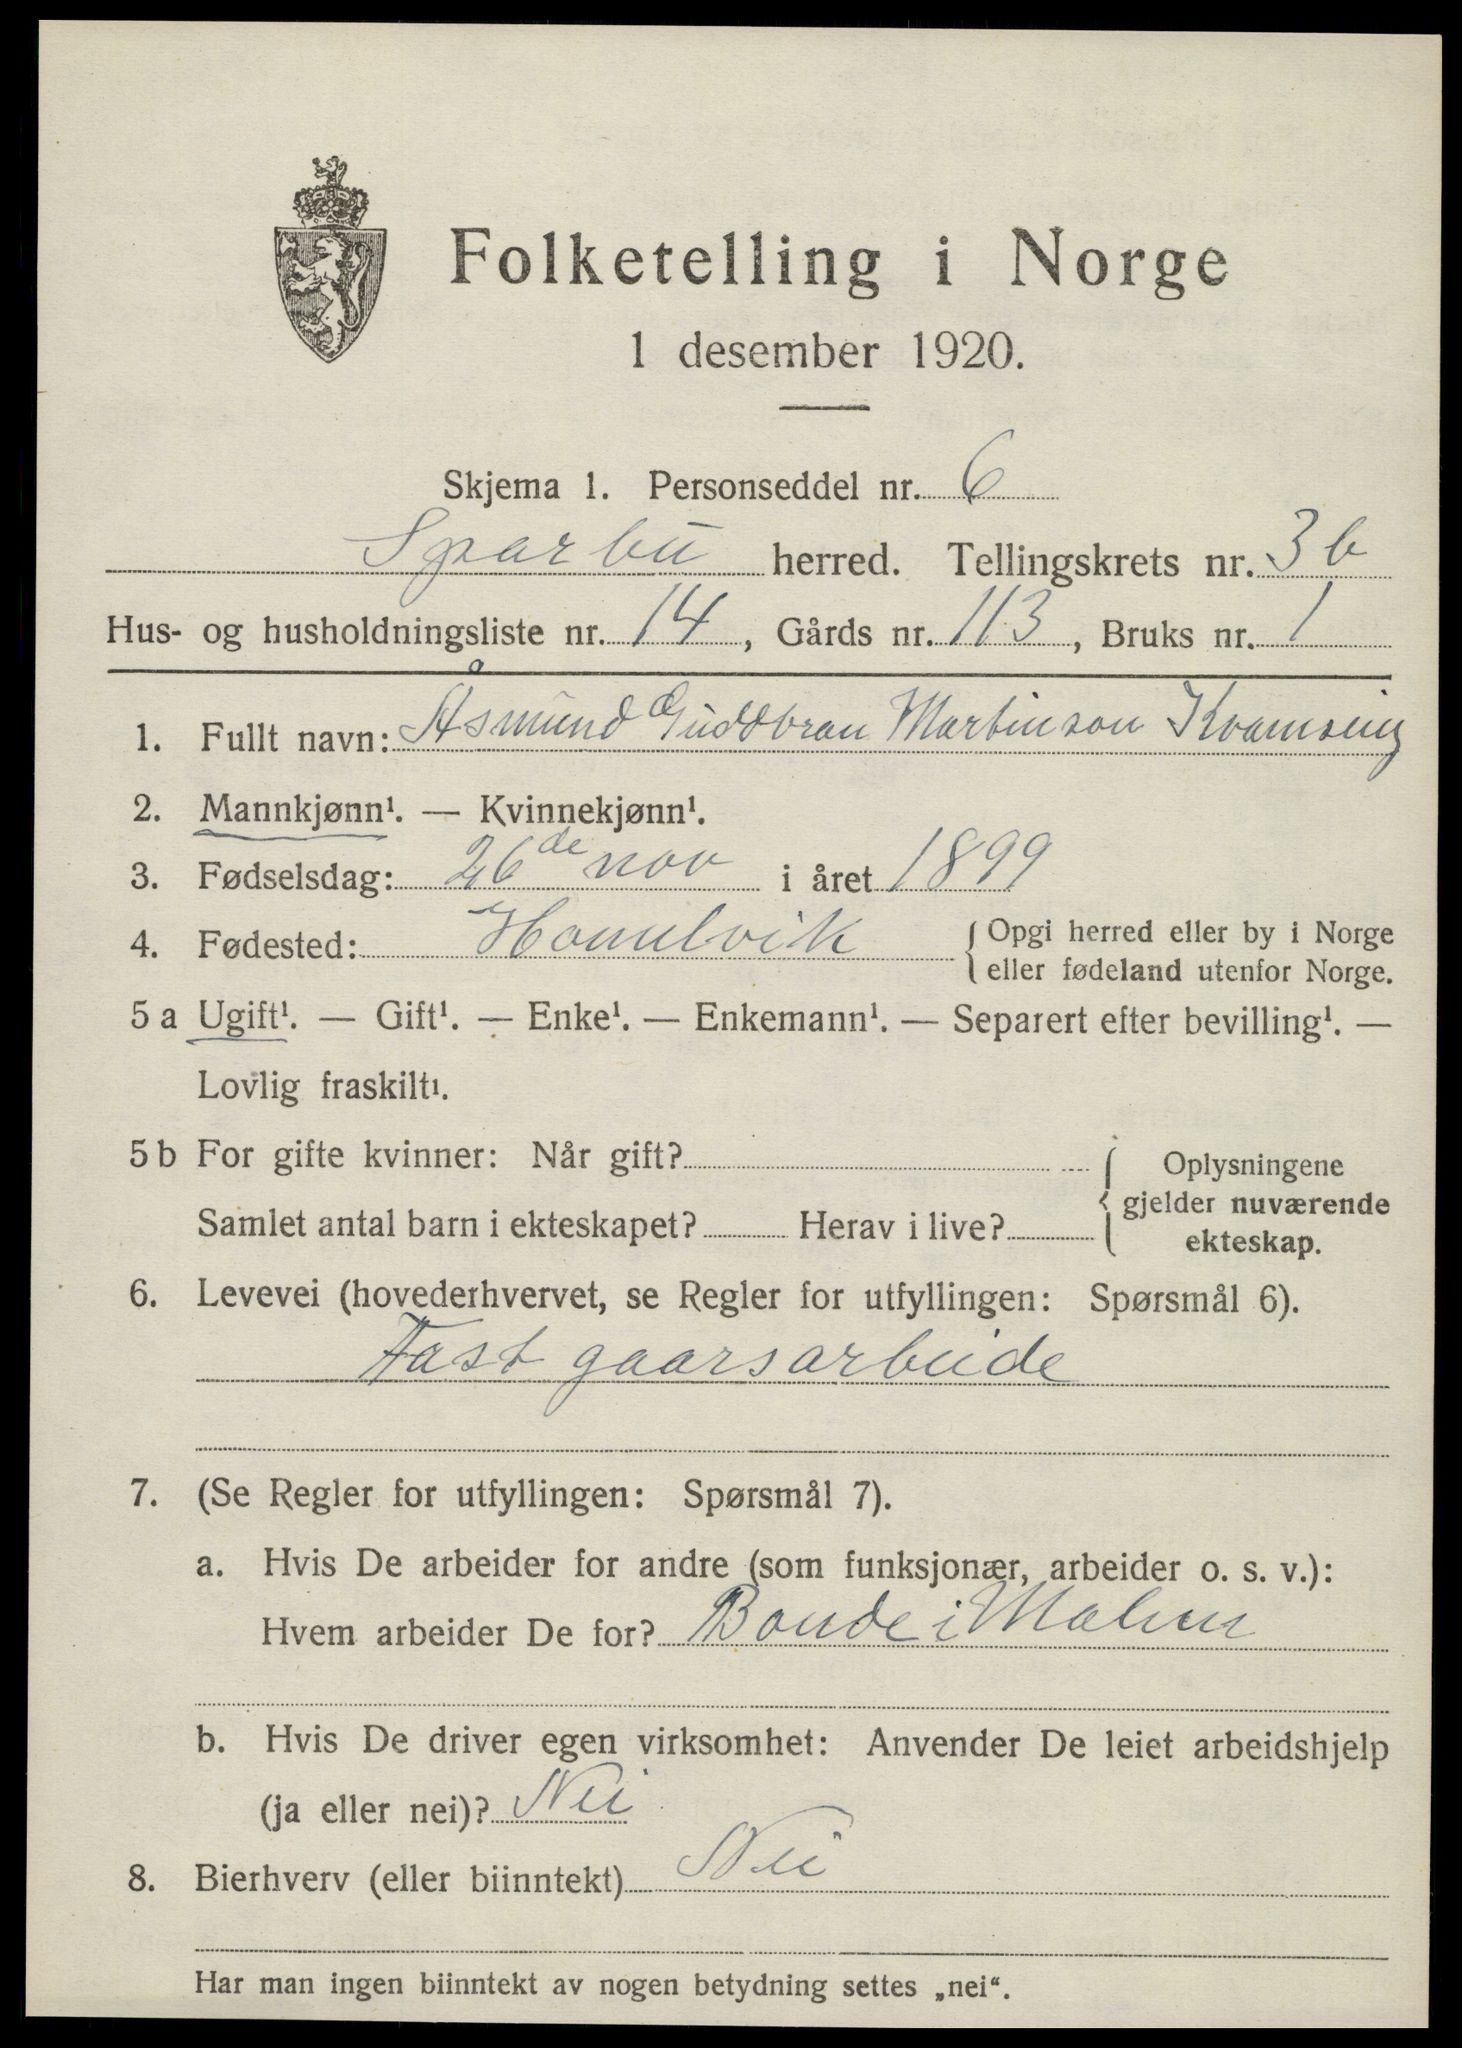 Folketelling i Norge
1 desember 1920.
Skjema 1. Personseddel nr. 6
Sparbu herred. Tellingskrets nr. 3 b
Hus- og husholdningsliste nr. 14, Gårds nr. 113, Bruks nr. 1
1. Fullt navn: Åsmund Guddbran Martinson
2. Mannkjønn¹. — Kvinnekjønn¹.
3. Fødselsdag: 26de nov i året 1899
4. Fødested: Homelvik { Opgi herred eller by i Norge
eller fødeland utenfor Norge.
5 a Ugift¹. — Gift¹. — Enke¹. — Enkemann¹. — Separert efter bevilling¹. —
Lovlig fraskilt¹.
5 b For gifte kvinner: Når gift? { Oplysningene
gjelder nuværende
Samlet antal barn i ekteskapet? Herav i live?
ekteskap.
6. Levevei (hovederhvervet, se Regler for utfyllingen: Spørsmål 6).
Fast gaarsarbeide
7. (Se Regler for utfyllingen: Spørsmål 7).
a. Hvis De arbeider for andre (som funksjonær, arbeider o. s. v.):
Hvem arbeider De for? Bonde i
b. Hvis De driver egen virksomhet: Anvender De leiet arbeidshjelp
(ja eller nei)? Nei
8. Bierhverv (eller biinntekt) Nei
Har man ingen biinntekt av nogen betydning settes „nei“.